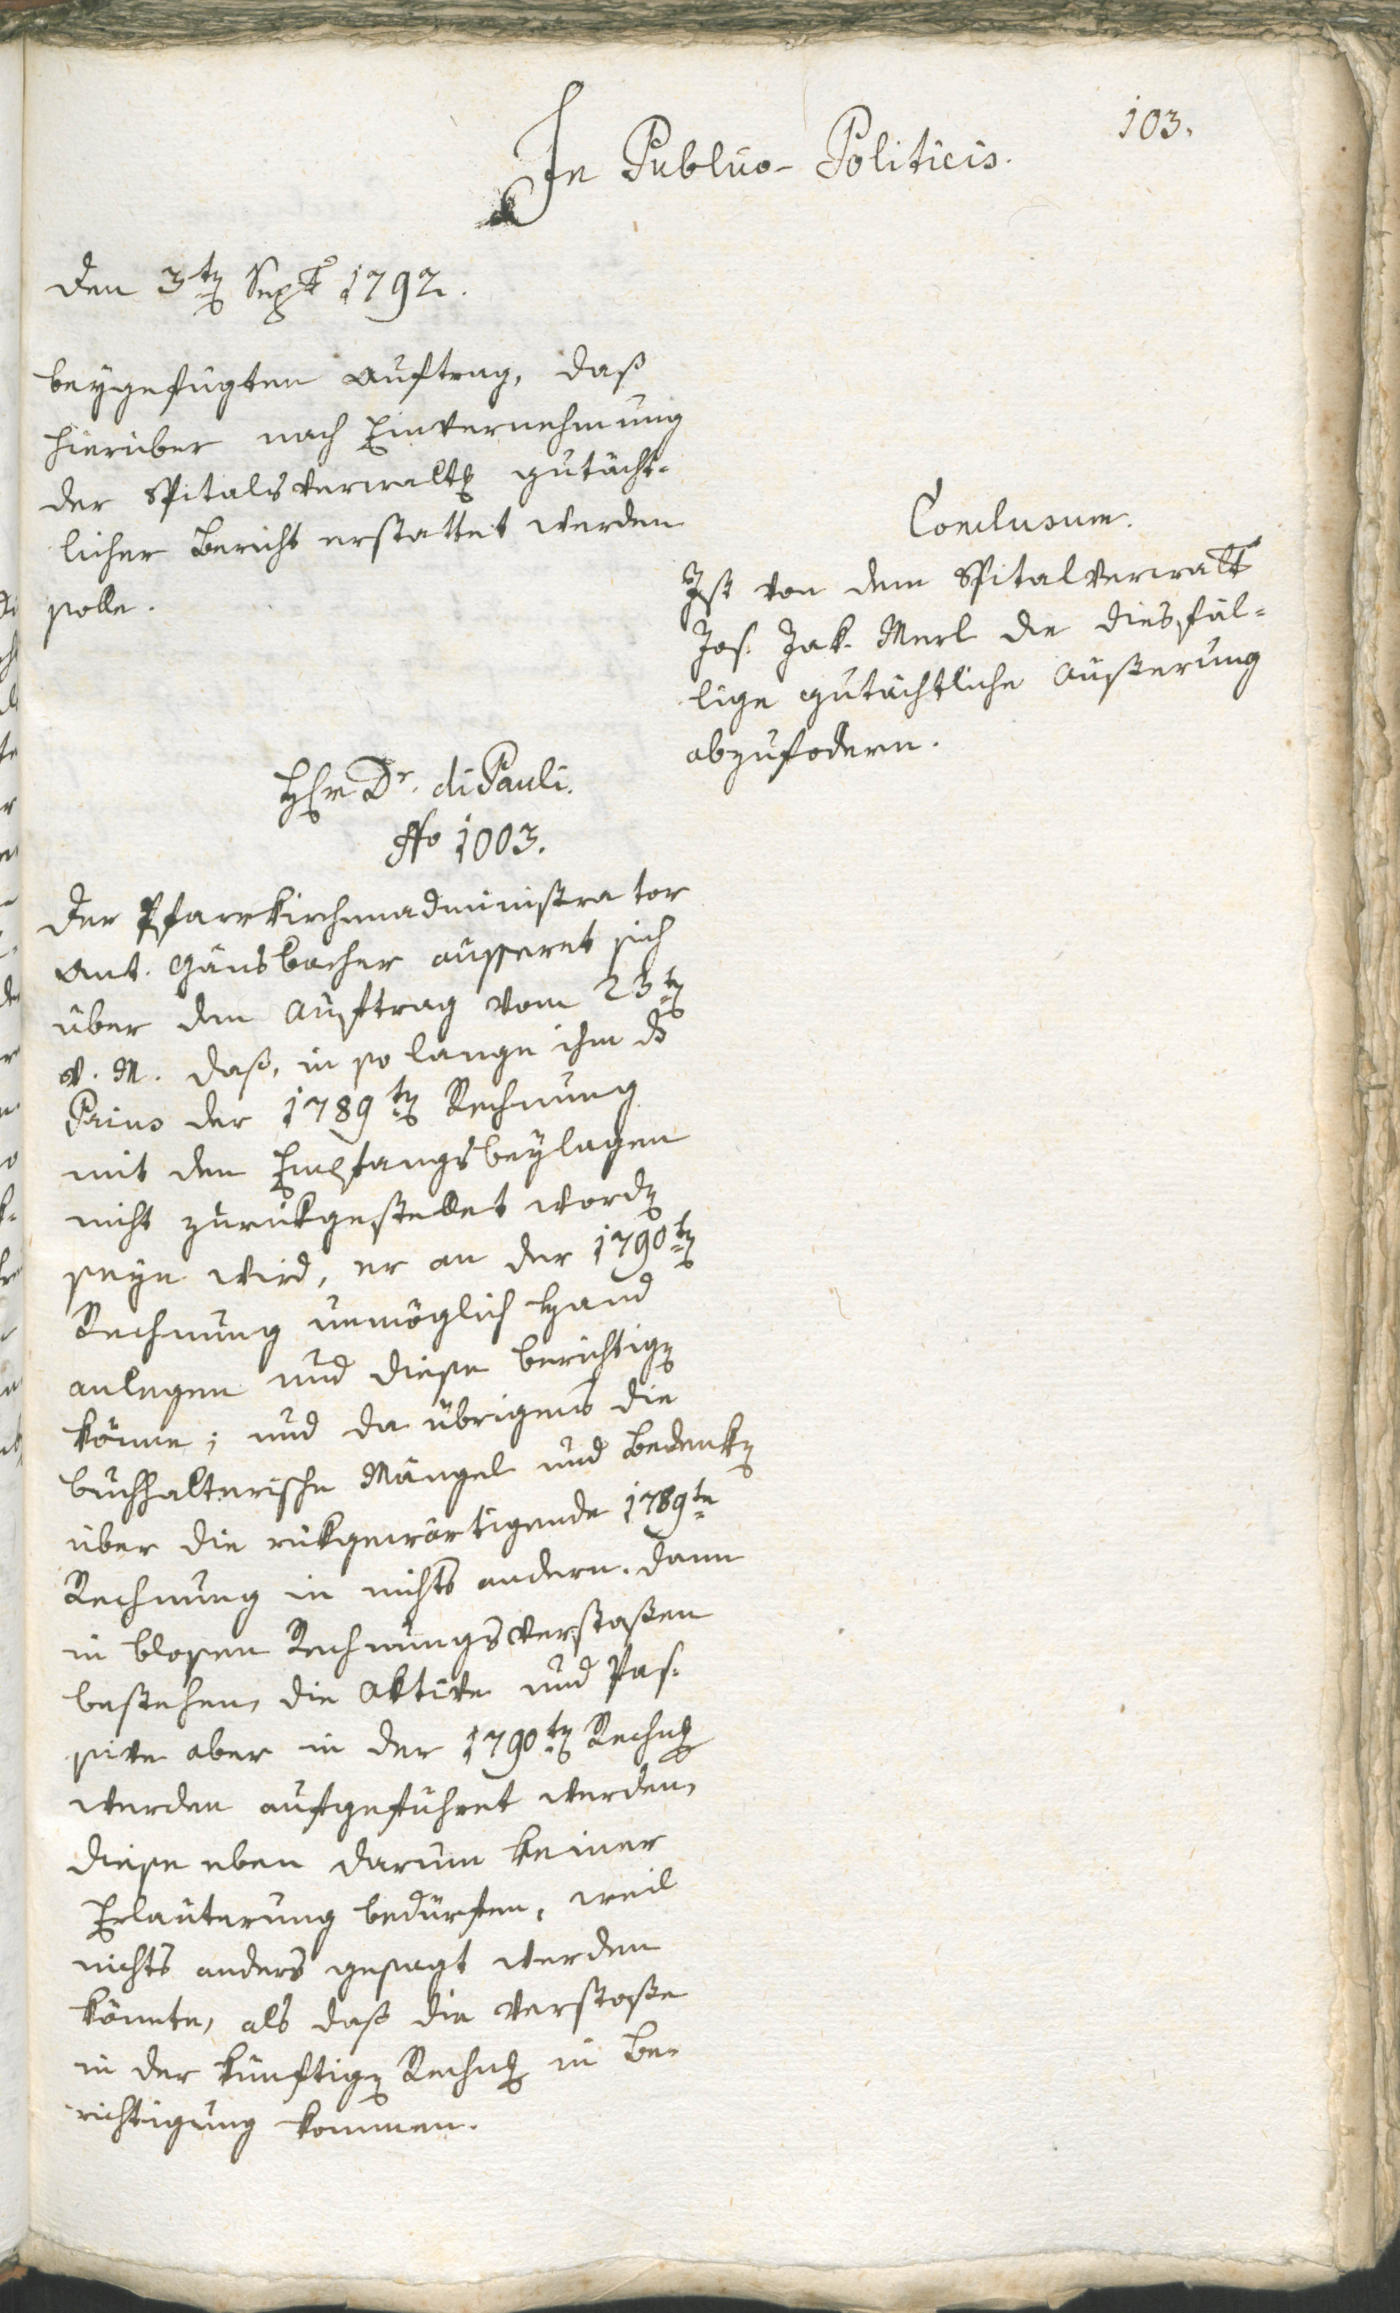 103.
In Publico-Politicis.
den 3ten Sept 1792.
beygefügten Auftrag, daß
hierüber nach Einvernehmung
der Spitalsverwaltg gutächt-
licher Bericht erstattet werden
solle.
Conclusum.
Ist von dem Spitalverwalt
Jos. Jak. Merl die diesfäl-
lige gutächtliche Äußerung
abzufodern.
Hr Dr. di Pauli.
No 1003.
Der Pfarrkirchenadministrator
Ant. Gänsbacher äusseret sich
über den Auftrag vom 23ten
v. M. daß, in so lange ihm ds
Prius der 1789ten Rechnung
mit den Empfangsbeylagen
nicht zurükgestellet worden
seyn wird, er an der 1790ten
Rechnung unmöglich Hand
anlegen und diese berichtigen
könne; und da übrigens die
buchhalterische Mängel und Bedenken
über die rükgewärtigende 1789te
Rechnung in nichts andern, dann
in blosen Rechnungsverstoßen
bestehen, die Aktive und Pas-
sive aber in der 1790ten Rechng
werden aufgeführet werden,
diese eben darum keiner
Erläuterung bedürften, weil
nichts anders gesagt werden
könnte, als daß die Verstoße
in der künftigen Rechng in Be-
richtigung kommen.